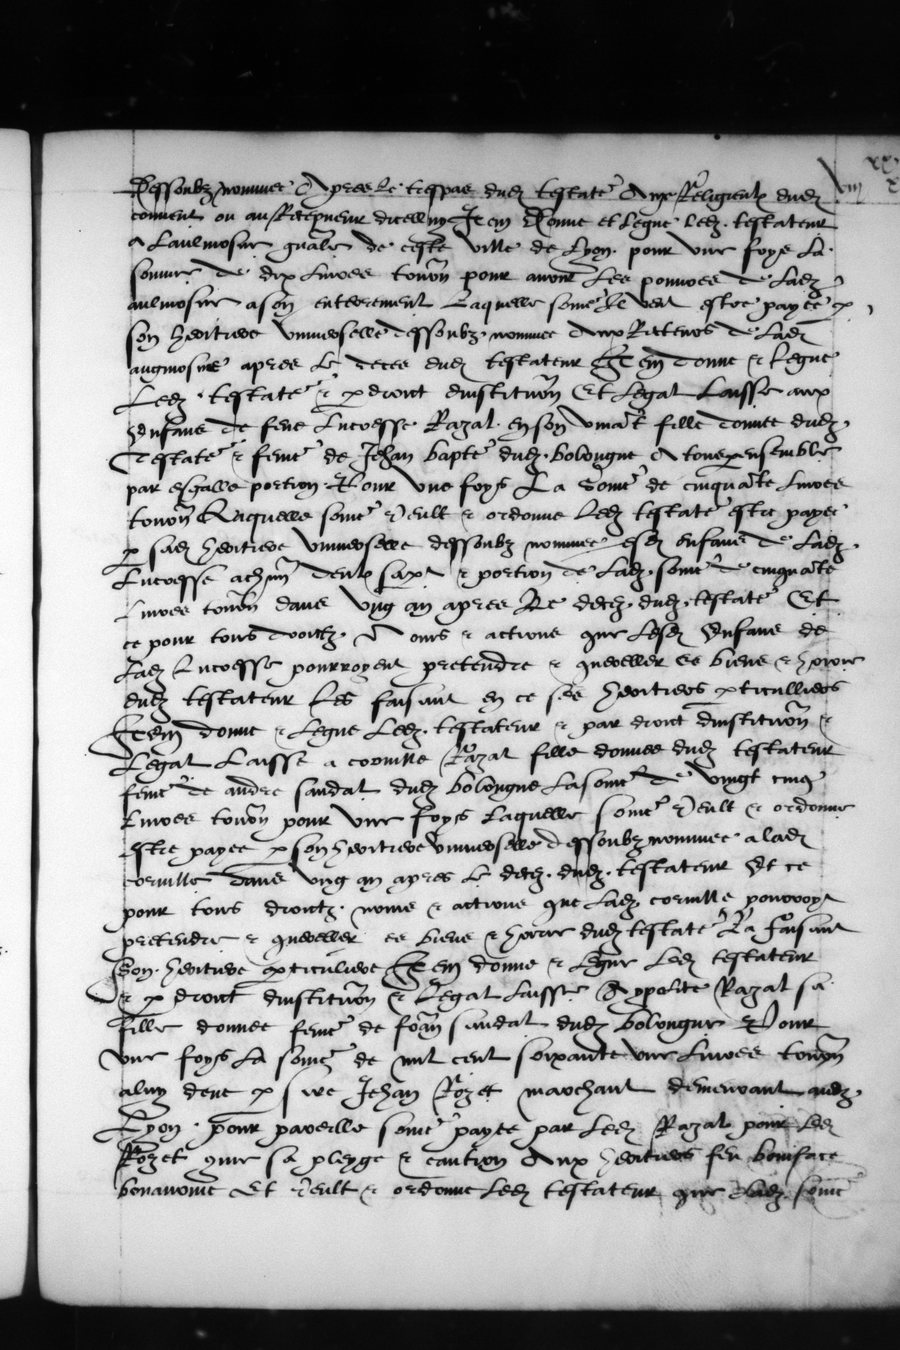 dessoubz nommee Apres le trespas dud testate' Aux Religieulx dud
convent ou au Recepveur dicelluy Item donne et legue led. testateur
a laulmosne gnalle de ceste ville de Lyon pour une foys la
somme de dix livres tourn pour avoir les pouvres de lad
aulmosne a son enterrement Laquelle some il veut estre payee p
son heritiere universelle dessoubz nommee aux Recteurs de lad
aulmosne apres le deces dud testateur Item donne & legue
led. testate' & p droict dinstitution Et legat laisse aux
Enfans de feue Lucresse Razal en son vivat fille donnee dud.
testate' & feme de Jehan bapte' dud. bolongne A tous ensemble
par esgalle portion Pour une foys La some' de cinquate livres
tourn Laquelle some' veult & ordonne led. testate' estre payee
p sad heritiere universelle dessoubz nommee esd enfans de lad.
Lucresse achun deulx sa pt & portion de lad. some' de cinquate
livres tourn dans ung an apres le deces. dud. testate' Et
ce pour tous droictz. noms & actions que lesd Enfans de
lad Lucresse pourroyent pretendre & quereller es biens & hoirie
dud testateur les faisant en ce ses heritiers pticulliers
Item donne & legue led. testateur & par droict dinstitution &
legat Laisse a Razal fille donnee dud testateur
feme' de andre sandal dud bolongne la some' de vingt cinq
livres tourn pour une foys laquelle some' veult & ordonne
estre payee p son heritiere universelle dessoubz nommee a lad
dans ung an apres le deces. dud. testateur Et ce
pour tous droictz. noms & actions que lad pourroyt
pretendre & quereller es biens & hoirie dud testate' La faisant
son heritiere pticuliere Item donne & legue led testateur
& p droict dinstitution & legat laisse A ypolite Razal sa
fille donnee feme' de sandal dud bolongne Pour
une foys la some' de cent soixante une livres tourn
a luy deue p sire Jehan Rozet marchant demeurant aud.
Lyon. pour pareille some' payee par led Razal pour led
Rozet que sa pleyge & caution Aux heritiers feu boniface
Et veult & ordonne led testateur que lad some'